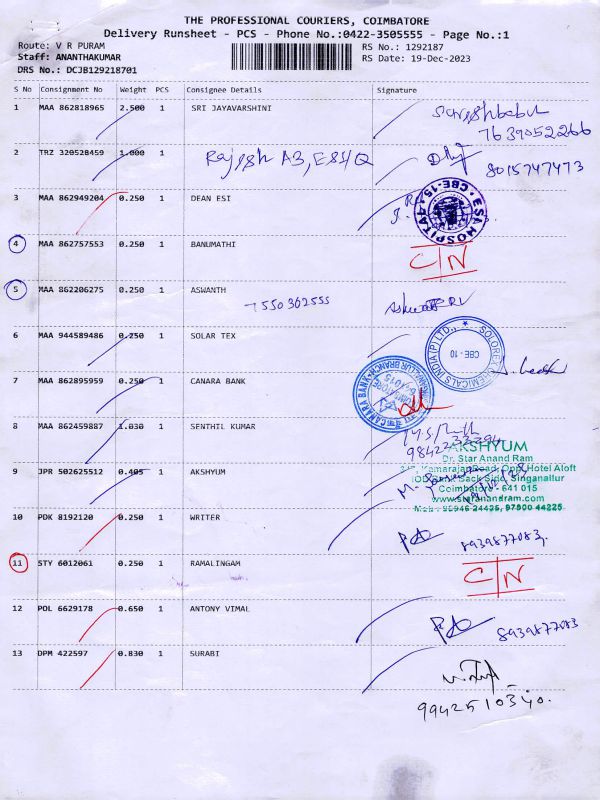 THE PROFESSIONAL COURIERS, COIMBATORE
Delivery Runsheet - PCS - Phone No.:0422-3505555 - Page No.:1
Route: V R PURAM
Staff: ANANTHAKUMAR
DRS No.: DCJB129218701
RS No.: 1292187
RS Date: 19-Dec-2023
S No Consignment No Weight PCS Consignee Details Signature
1 MAA 862818965 2.500 1 SRI JAYAVARSHINI
7639052266
2 TRZ 320528459 1.000 1 8015747473
3 MAA 862949204 0.250 1 DEAN ESI
ESI HOSPITAL CBE-15
4 MAA 862757553 0.250 1 BANUMATHI C/N
5 MAA 862206275 0.250 1 ASWANTH 7550362555
6 MAA 944589486 0.250 1 SOLAR TEX
CBE - 10
7 MAA 862895959 0.250 1 CANARA BANK
CANARA BANK
8 MAA 862459887 1.030 1 SENTHIL KUMAR
9842233294
9 JPR 502625512 0.405 1 AKSHYUM
AKSHYUM
Dr. Star Anand Ram
Kamarajar Road, Opp. Hotel Aloft
Back Side, Singanallur
Coimbatore - 641 015
www.staranandram.com
Mob : 95946 24425, 97900 44225
10 PDK 8192120 0.250 1 WRITER 8939877083
11 STY 6012061 0.250 1 RAMALINGAM C/N
12 POL 6629178 0.650 1 ANTONY VIMAL 8939877083
13 DPM 422597 0.830 1 SURABI